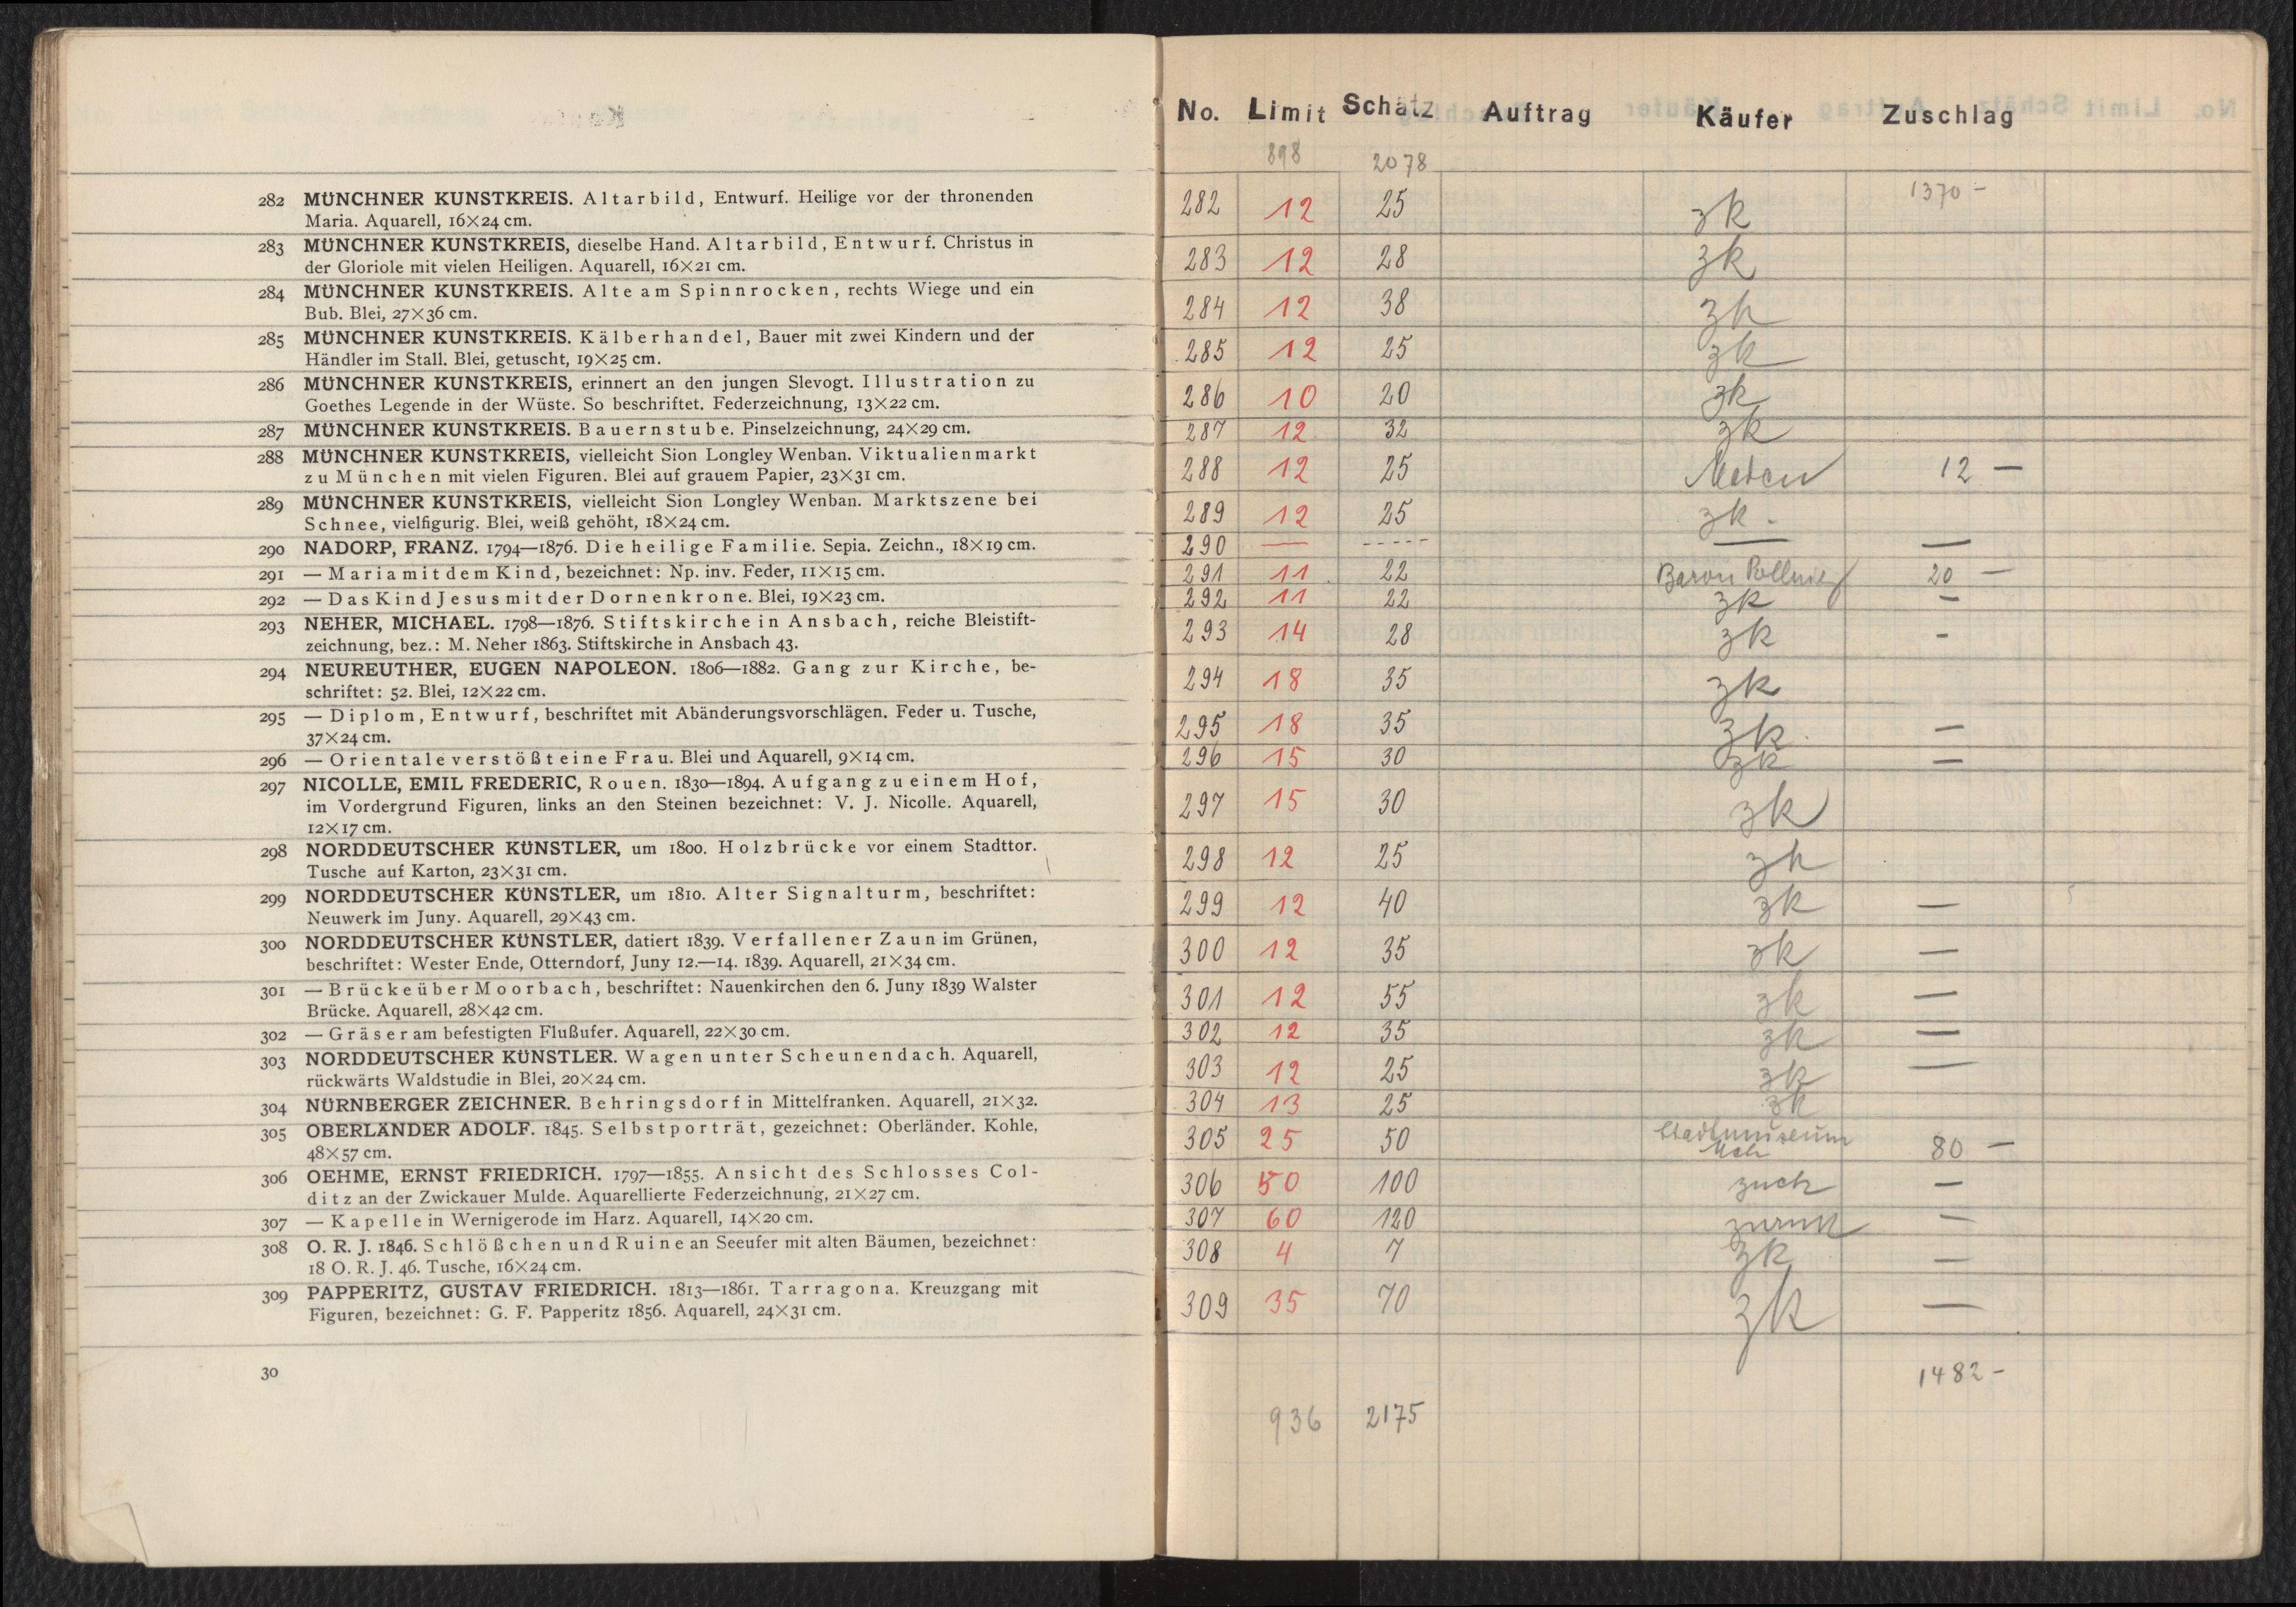 282 MÜNCHNER KUNSTKREIS. Altarbild, Entwurf. Heilige vor der thronenden
Maria. Aquarell, 16×24 cm.
283 MÜNCHNER KUNSTKREIS, dieselbe Hand. Altarbild, Entwurf. Christus in
der Gloriole mit vielen Heiligen. Aquarell, 16×21 cm.
284 MÜNCHNER KUNSTKREIS. Alte am Spinnrocken, rechts Wiege und ein
Bub. Blei, 27×36 cm.
285 MÜNCHNER KUNSTKREIS. Kälberhandel, Bauer mit zwei Kindern und der
Händler im Stall. Blei, getuscht, 19×25 cm.
286 MÜNCHNER KUNSTKREIS, erinnert an den jungen Slevogt. Illustration zu
Goethes Legende in der Wüste. So beschriftet. Federzeichnung, 13×22 cm.
287 MÜNCHNER KUNSTKREIS. Bauernstube. Pinselzeichnung, 24×29 cm.
288 MÜNCHNER KUNSTKREIS, vielleicht Sion Longley Wenban. Viktualienmarkt
zu München mit vielen Figuren. Blei auf grauem Papier, 23×31 cm.
289 MÜNCHNER KUNSTKREIS, vielleicht Sion Longley Wenban. Marktszene bei
Schnee, vielfigurig. Blei, weiß gehöht, 18×24 cm.
290 NADORP, FRANZ. 1794—1876. Die heilige Familie. Sepia. Zeichn., 18×19 cm.
291 — Maria mit dem Kind, bezeichnet: Np. inv. Feder, 11×15 cm.
292 — Das Kind Jesus mit der Dornenkrone. Blei, 19×23 cm.
293 NEHER, MICHAEL. 1798—1876. Stiftskirche in Ansbach, reiche Bleistift-
zeichnung, bez.: M. Neher 1863. Stiftskirche in Ansbach 43.
294 NEUREUTHER, EUGEN NAPOLEON. 1806—1882. Gang zur Kirche, be-
schriftet: 52. Blei, 12×22 cm.
295 — Diplom, Entwurf, beschriftet mit Abänderungsvorschlägen. Feder u. Tusche,
37×24 cm.
296 — Orientale verstößt eine Frau. Blei und Aquarell, 9×14 cm.
297 NICOLLE, EMIL FREDERIC, Rouen. 1830—1894. Aufgang zu einem Hof,
im Vordergrund Figuren, links an den Steinen bezeichnet: V. J. Nicolle. Aquarell,
12×17 cm.
298 NORDDEUTSCHER KÜNSTLER, um 1800. Holzbrücke vor einem Stadttor.
Tusche auf Karton, 23×31 cm.
299 NORDDEUTSCHER KÜNSTLER, um 1810. Alter Signalturm, beschriftet:
Neuwerk im Juny. Aquarell, 29×43 cm.
300 NORDDEUTSCHER KÜNSTLER, datiert 1839. Verfallener Zaun im Grünen,
beschriftet: Wester Ende, Otterndorf, Juny 12.—14. 1839. Aquarell, 21×34 cm.
301 — Brücke über Moorbach, beschriftet: Nauenkirchen den 6. Juny 1839 Walster
Brücke. Aquarell, 28×42 cm.
302 — Gräser am befestigten Flußufer. Aquarell, 22×30 cm.
303 NORDDEUTSCHER KÜNSTLER. Wagen unter Scheunendach. Aquarell,
rückwärts Waldstudie in Blei, 20×24 cm.
304 NÜRNBERGER ZEICHNER. Behringsdorf in Mittelfranken. Aquarell, 21×32.
305 OBERLÄNDER ADOLF. 1845. Selbstporträt, gezeichnet: Oberländer. Kohle,
48×57 cm.
306 OEHME, ERNST FRIEDRICH. 1797—1855. Ansicht des Schlosses Col-
ditz an der Zwickauer Mulde. Aquarellierte Federzeichnung, 21×27 cm.
307 — Kapelle in Wernigerode im Harz. Aquarell, 14×20 cm.
308 O. R. J. 1846. Schlößchen und Ruine an Seeufer mit alten Bäumen, bezeichnet:
18 O. R. J. 46. Tusche, 16×24 cm.
309 PAPPERITZ, GUSTAV FRIEDRICH. 1813—1861. Tarragona. Kreuzgang mit
Figuren, bezeichnet: G. F. Papperitz 1856. Aquarell, 24×31 cm.
30
No. Limit Schätz Auftrag Käufer Zuschlag
898 2078
1370 -
282 12 25 zk
283 12 28 zk
284 12 38 zk
285 12 25 zk
286 10 20 zk
287 12 32 zk
288 12 25 12 —
289 12 25 zk -
290 — ----- — —
291 11 22 Baron Pöllnitz 20 —
292 11 22 zk —
293 14 28 zk -
294 18 35 zk
295 18 35 zk —
296 15 30 zk —
297 15 30 zk
298 12 25 zk
299 12 40 zk —
300 12 35 zk —
301 12 55 zk —
302 12 35 zk —
303 12 25 zk —
304 13 25 zk
305 25 50 Stadtmuseum 80 —
306 50 100 —
307 60 120 zurück —
308 4 7 zk —
309 35 70 zk —
1482 -
936 2175